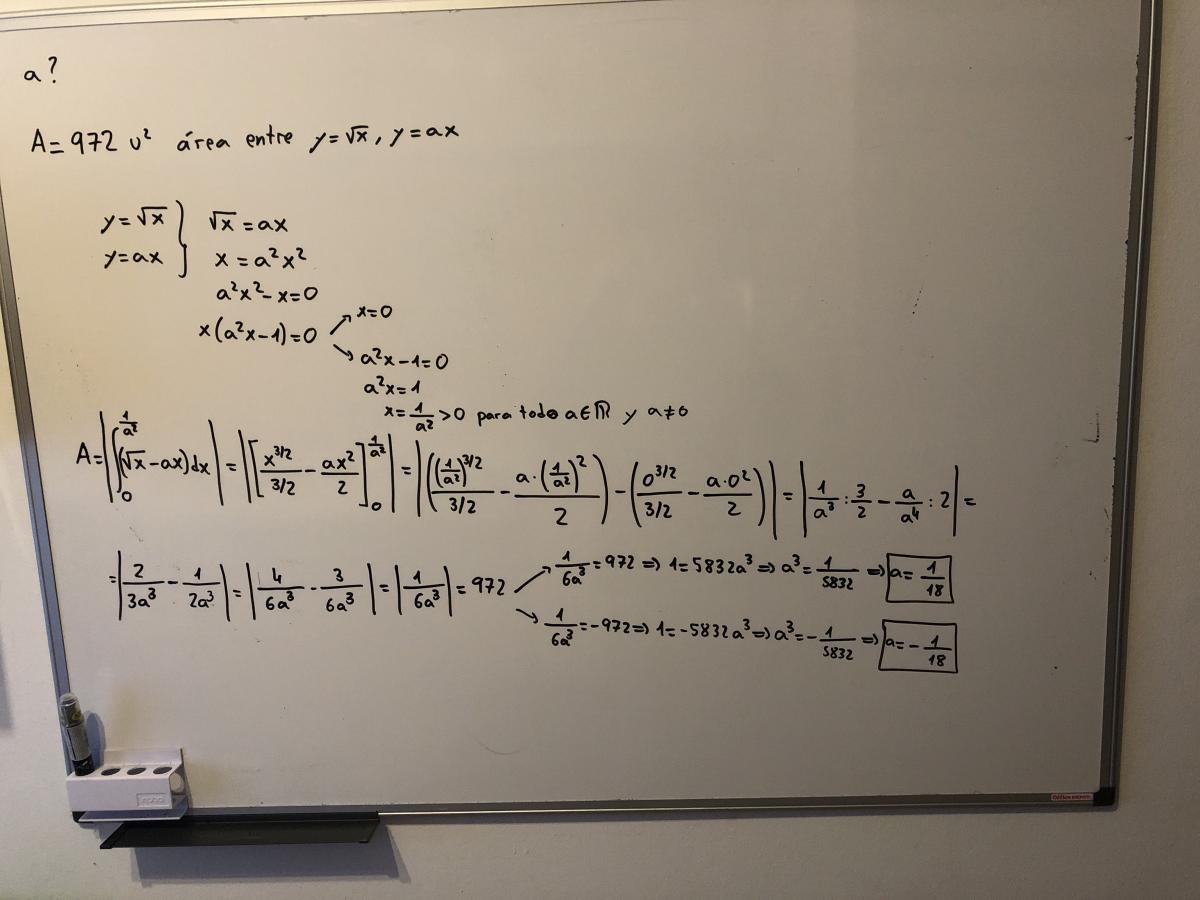 a?
A = 972 u² área entre y = √x, y = ax
y = √x } √x = ax
y = ax } x = a²x²
a²x² - x = 0
x(a²x - 1) = 0 ↗ x = 0
↘ a²x - 1 = 0
a²x = 1
x = 1/a² > 0 para todo a ∈ ℝ y a ≠ 0
A = |∫₀^(1/a²) (√x - ax) dx| = |[x^(3/2)/(3/2) - ax²/2]₀^(1/a²)| = |((1/a²)^(3/2)/(3/2) - a·(1/a²)²/2) - (0^(3/2)/(3/2) - a·0²/2)| = |1/a³ : 3/2 - a/a⁴ : 2| =
= |2/3a³ - 1/2a³| = |4/6a³ - 3/6a³| = |1/6a³| = 972 ↗ 1/6a³ = 972 ⇒ 1 = 5832a³ ⇒ a³ = 1/5832 ⇒ a = 1/18
↘ 1/6a³ = -972 ⇒ 1 = -5832a³ ⇒ a³ = -1/5832 ⇒ a = -1/18